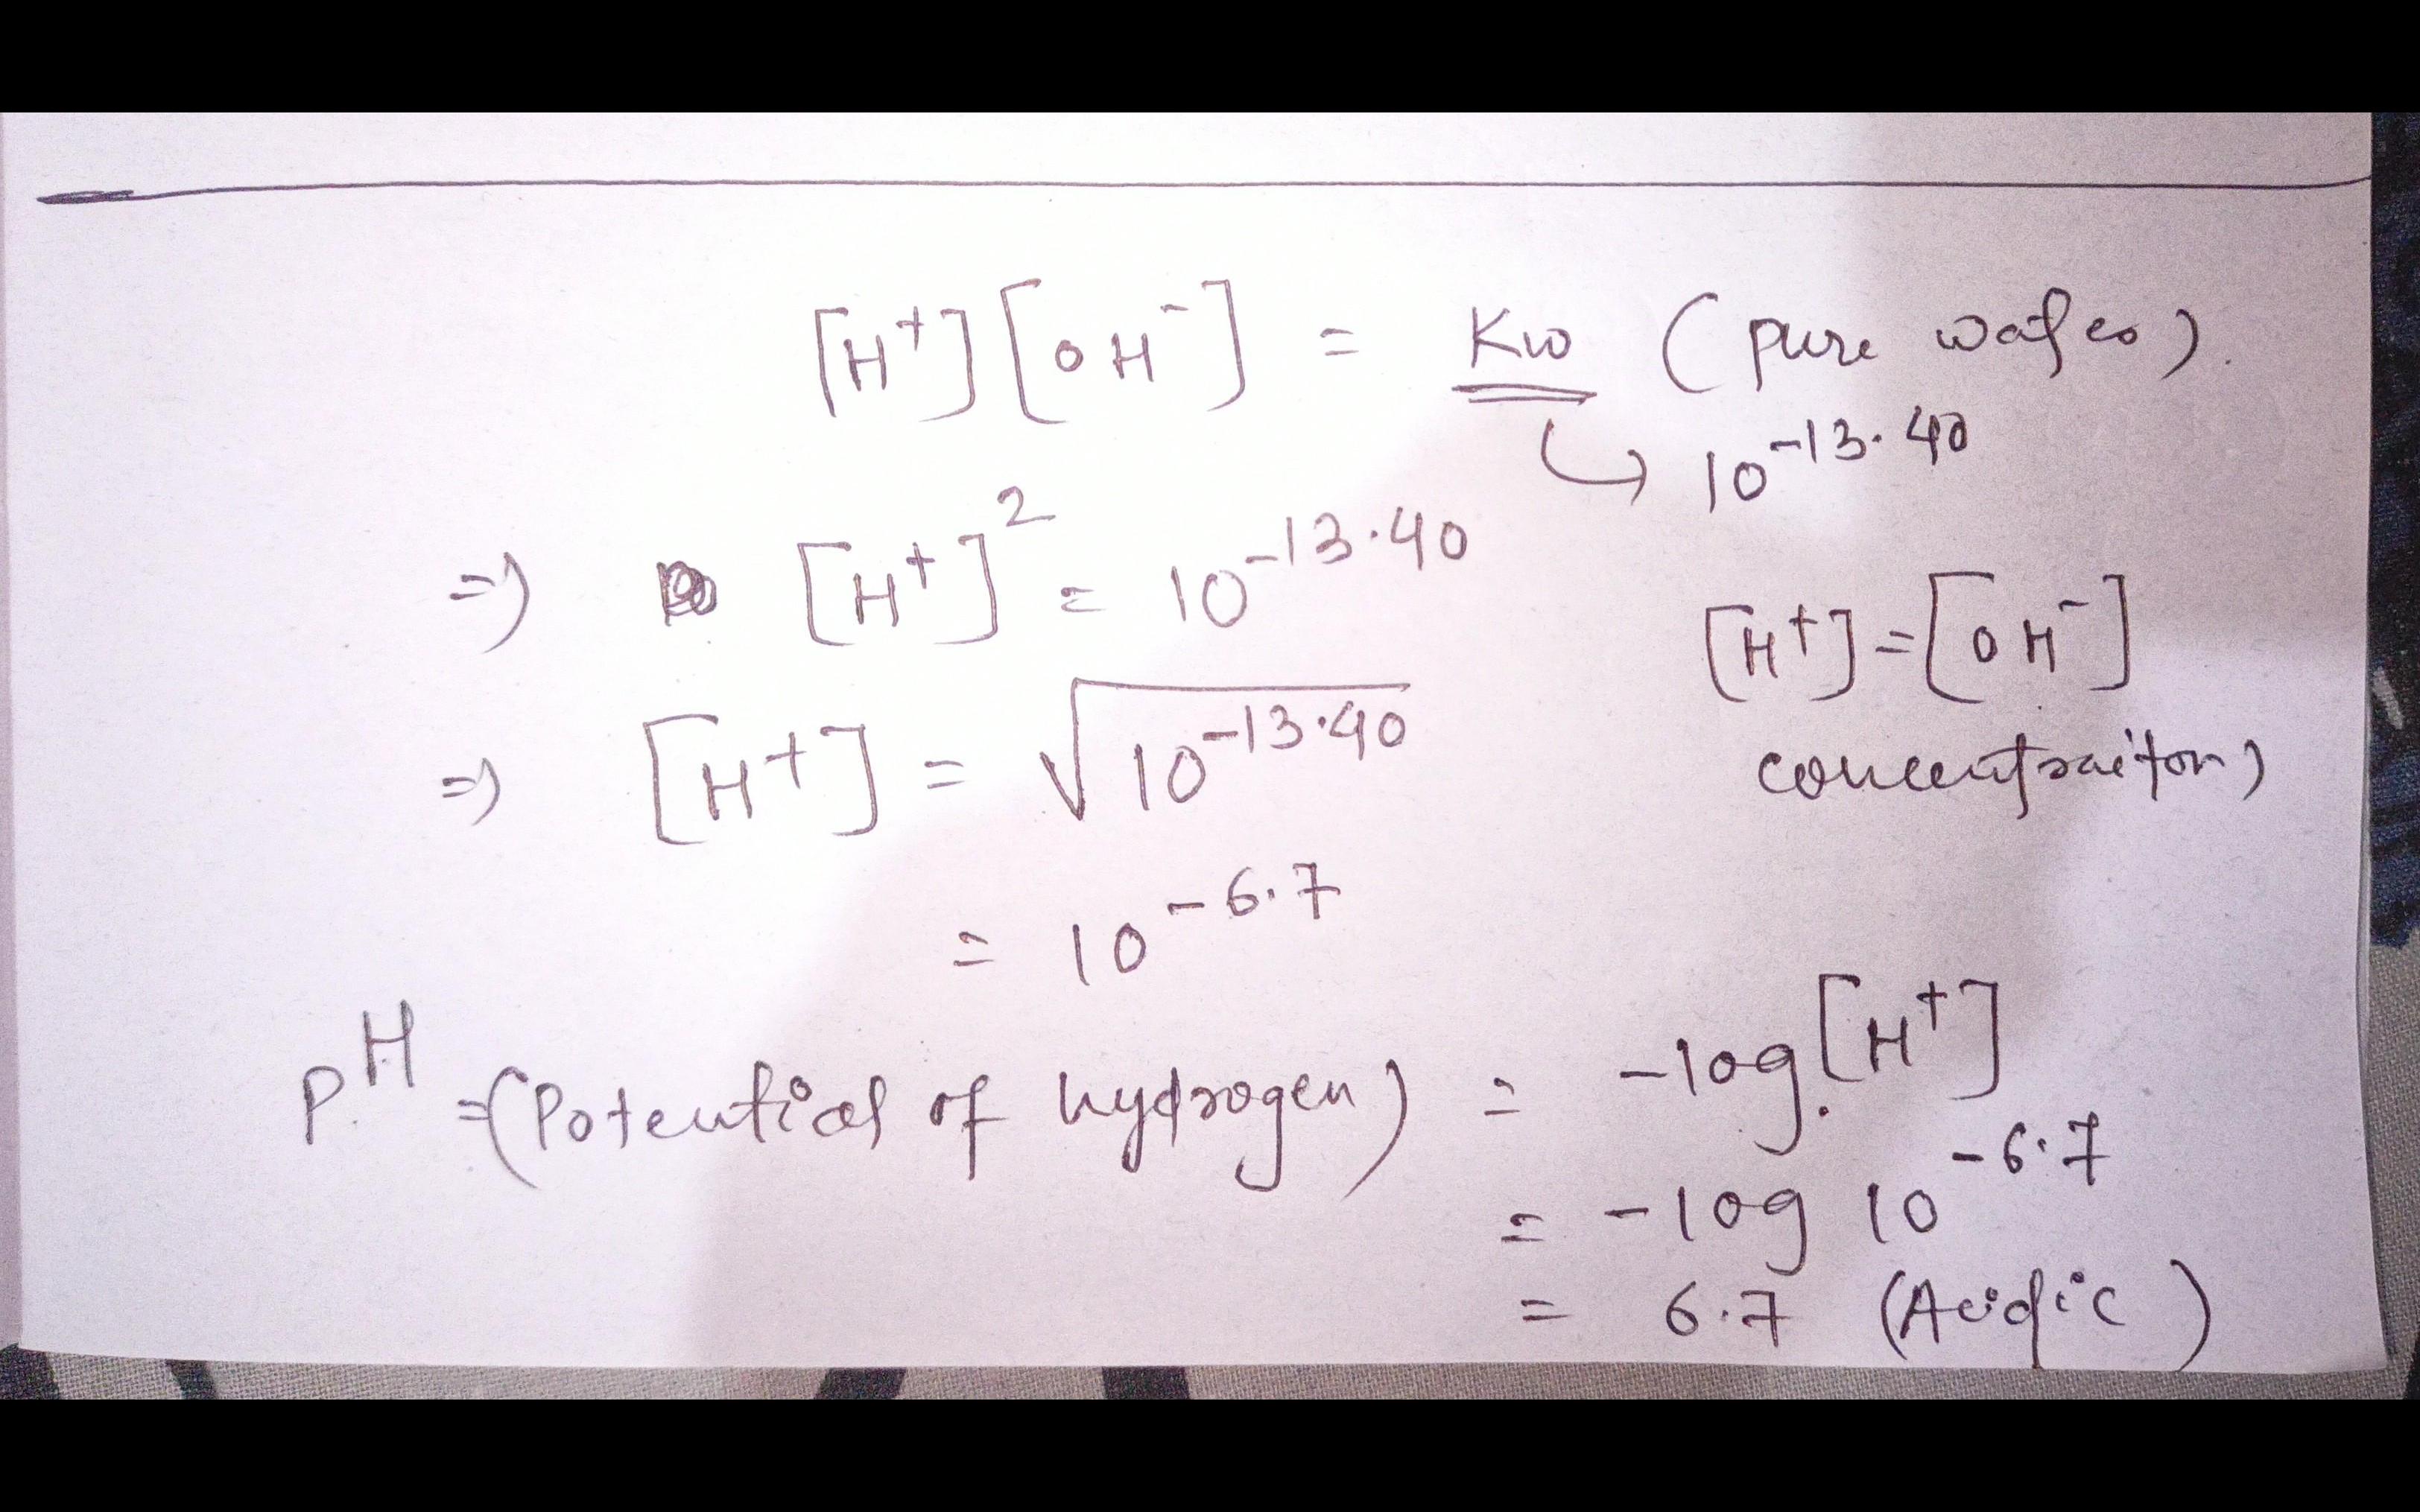 [H⁺][OH⁻] = Kw (pure water).
↳ 10⁻¹³·⁴⁰
⇒ [H⁺]² = 10⁻¹³·⁴⁰
[H⁺]=[OH⁻]
⇒ [H⁺] = √10⁻¹³·⁴⁰
concentraiton)
= 10⁻⁶·⁷
pᴴ =(Potential of hydrogen) = -log[H⁺]
= -log 10⁻⁶·⁷
= 6.7 (Acidic)